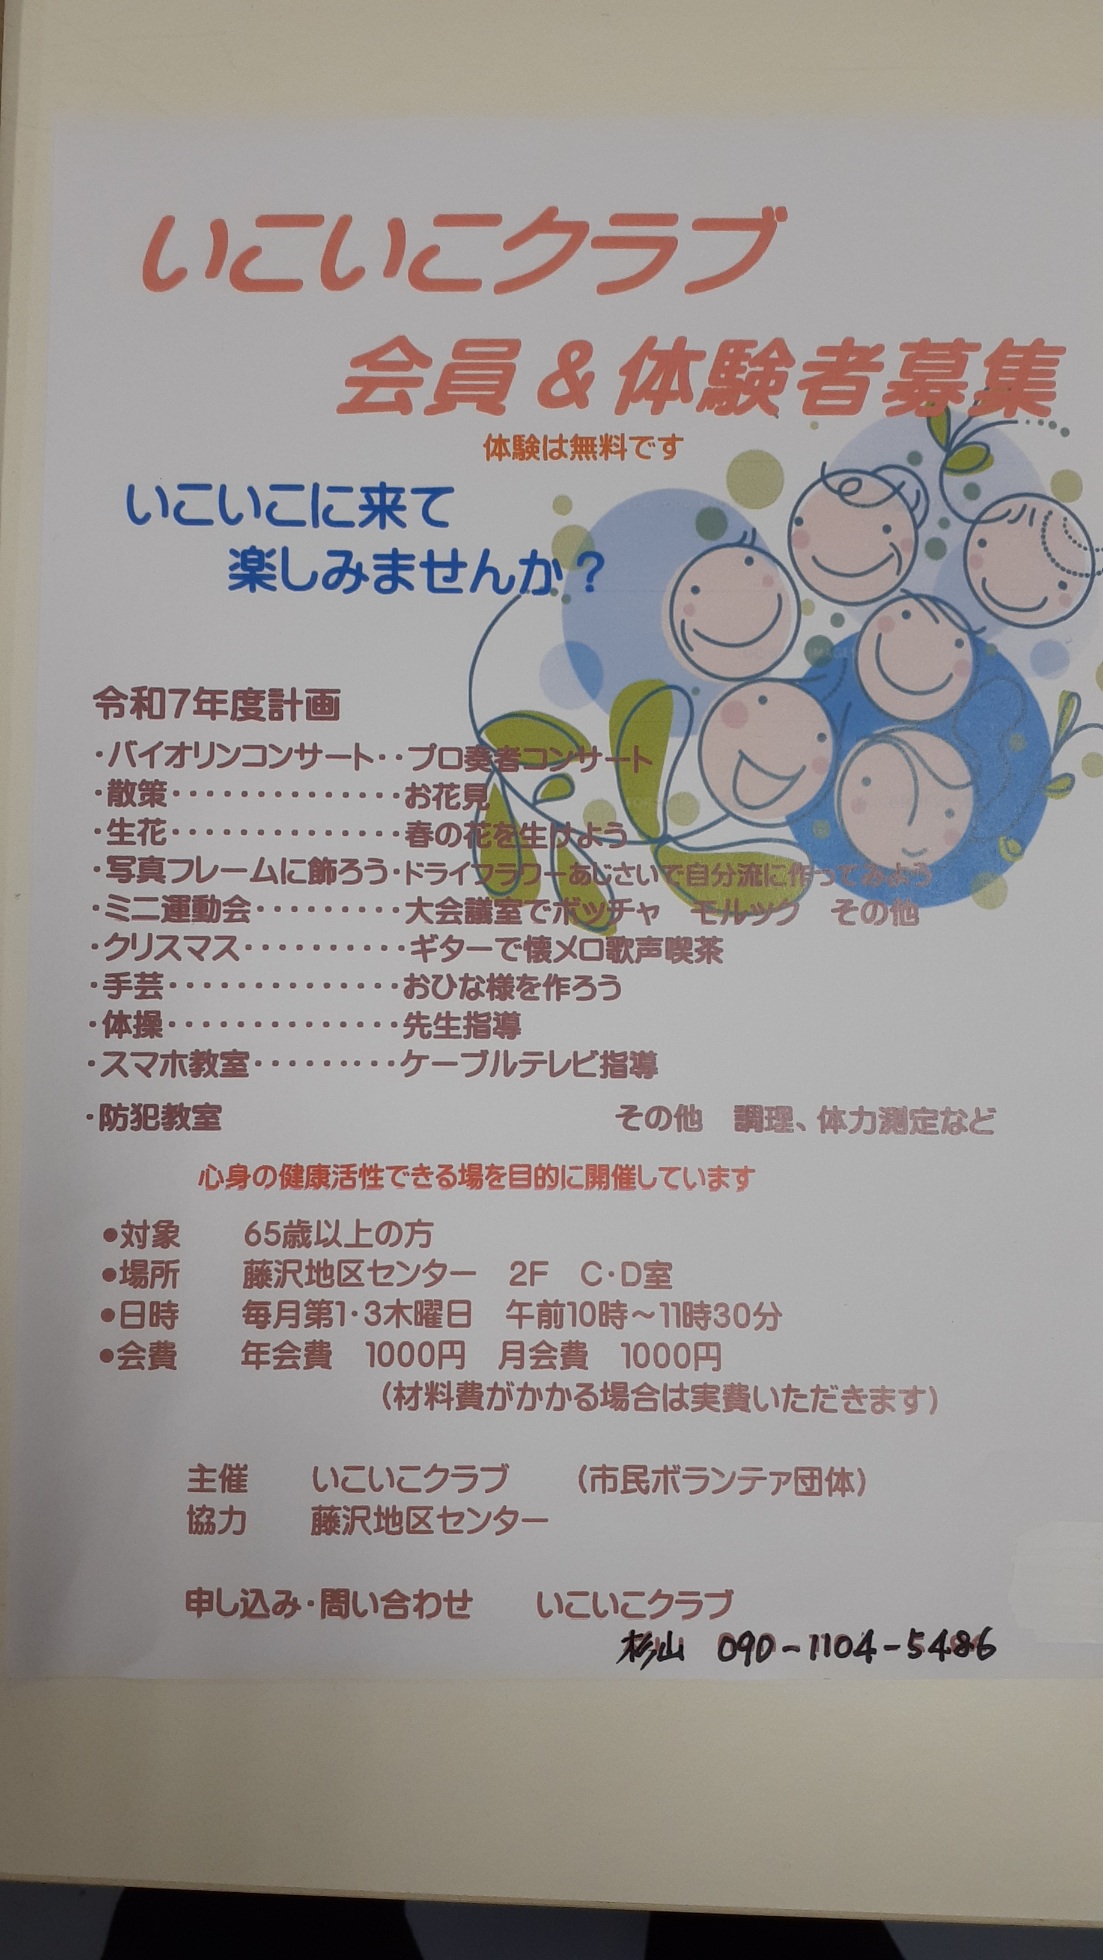 いこいこクラブ
会員＆体験者募集
体験は無料です
いこいこに来て
楽しみませんか？
令和7年度計画
・バイオリンコンサート・・プロ奏者コンサート
・散策・・・・・・・・・・・・・・お花見
・生花・・・・・・・・・・・・・・春の花を生けよう
・写真フレームに飾ろう・ドライフラワーあじさいで自分流に作ってみよう
・ミニ運動会・・・・・・・・・・大会議室でボッチャ　モルック　その他
・クリスマス・・・・・・・・・・・ギターで懐メロ歌声喫茶
・手芸・・・・・・・・・・・・・・おひな様を作ろう
・体操・・・・・・・・・・・・・・先生指導
・スマホ教室・・・・・・・・・ケーブルテレビ指導
・防犯教室　その他　調理、体力測定など
心身の健康活性できる場を目的に開催しています
●対象　65歳以上の方
●場所　藤沢地区センター　2F　C・D室
●日時　毎月第1・3木曜日　午前10時～11時30分
●会費　年会費　1000円　月会費　1000円
（材料費がかかる場合は実費いただきます）
主催　いこいこクラブ　（市民ボランティア団体）
協力　藤沢地区センター
申し込み・問い合わせ　いこいこクラブ
杉山　090-1104-5486